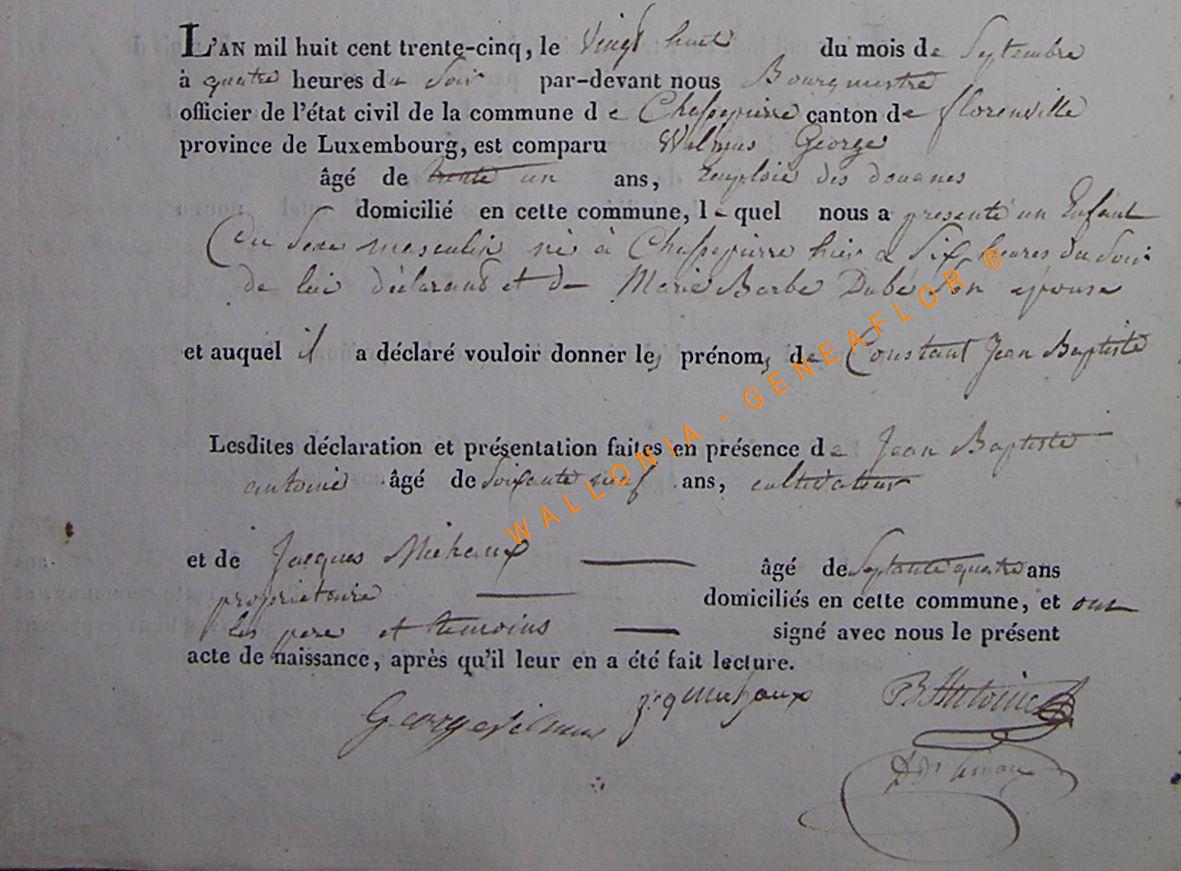 L'AN mil huit cent trente-cinq, le Vingt huit du mois de Septembre
à quatre heures du Soir par-devant nous Bourgmestre
officier de l'état civil de la commune de Chassepierre canton de florenville
province de Luxembourg, est comparu Wilmus George
âgé de trente un ans, Employé des douanes
domicilié en cette commune, lequel nous a presenté un Enfant
du Sexe masculin né à Chassepierre hier a Six heures du Soir
de lui déclarant et de Marie Barbe Dubé Son épouse
et auquel il a déclaré vouloir donner les prénoms de Constant Jean Baptiste
Lesdites déclaration et présentation faites en présence de Jean Baptiste
antoine âgé de Soixante neuf ans, cultivateur
et de Jacques Michaux âgé de Septante quatre ans
propriétaire domiciliés en cette commune, et ont
les pere et temoins signé avec nous le présent
acte de naissance, après qu'il leur en a été fait lecture.
George Wilmus
B Antoine
WALLONIA - GENEAFLOR ®